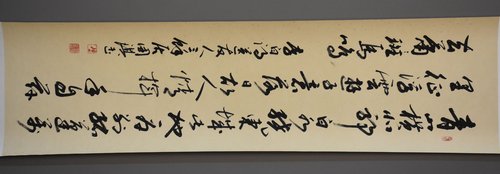 青山橫北郭白水繞東城此地一為別孤蓬萬
里征浮雲遊子意落日故人情揮手自茲
去蕭蕭班馬鳴
李白 送友人